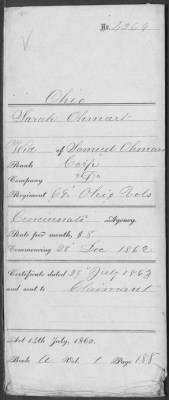 No. 4269
Ohio
Sarah Ohmart
Wid of Samuel Ohmart
Rank Corpl
Company
Regiment 68" Ohio Vols
Cincinnati Agency.
Rate per month, $8.
Commencing 28" Dec 1862
Certificate dated 29" July 1863
and sent to Claimant
Act 14th July, 1862.
Book A Vol. 1 Page 188